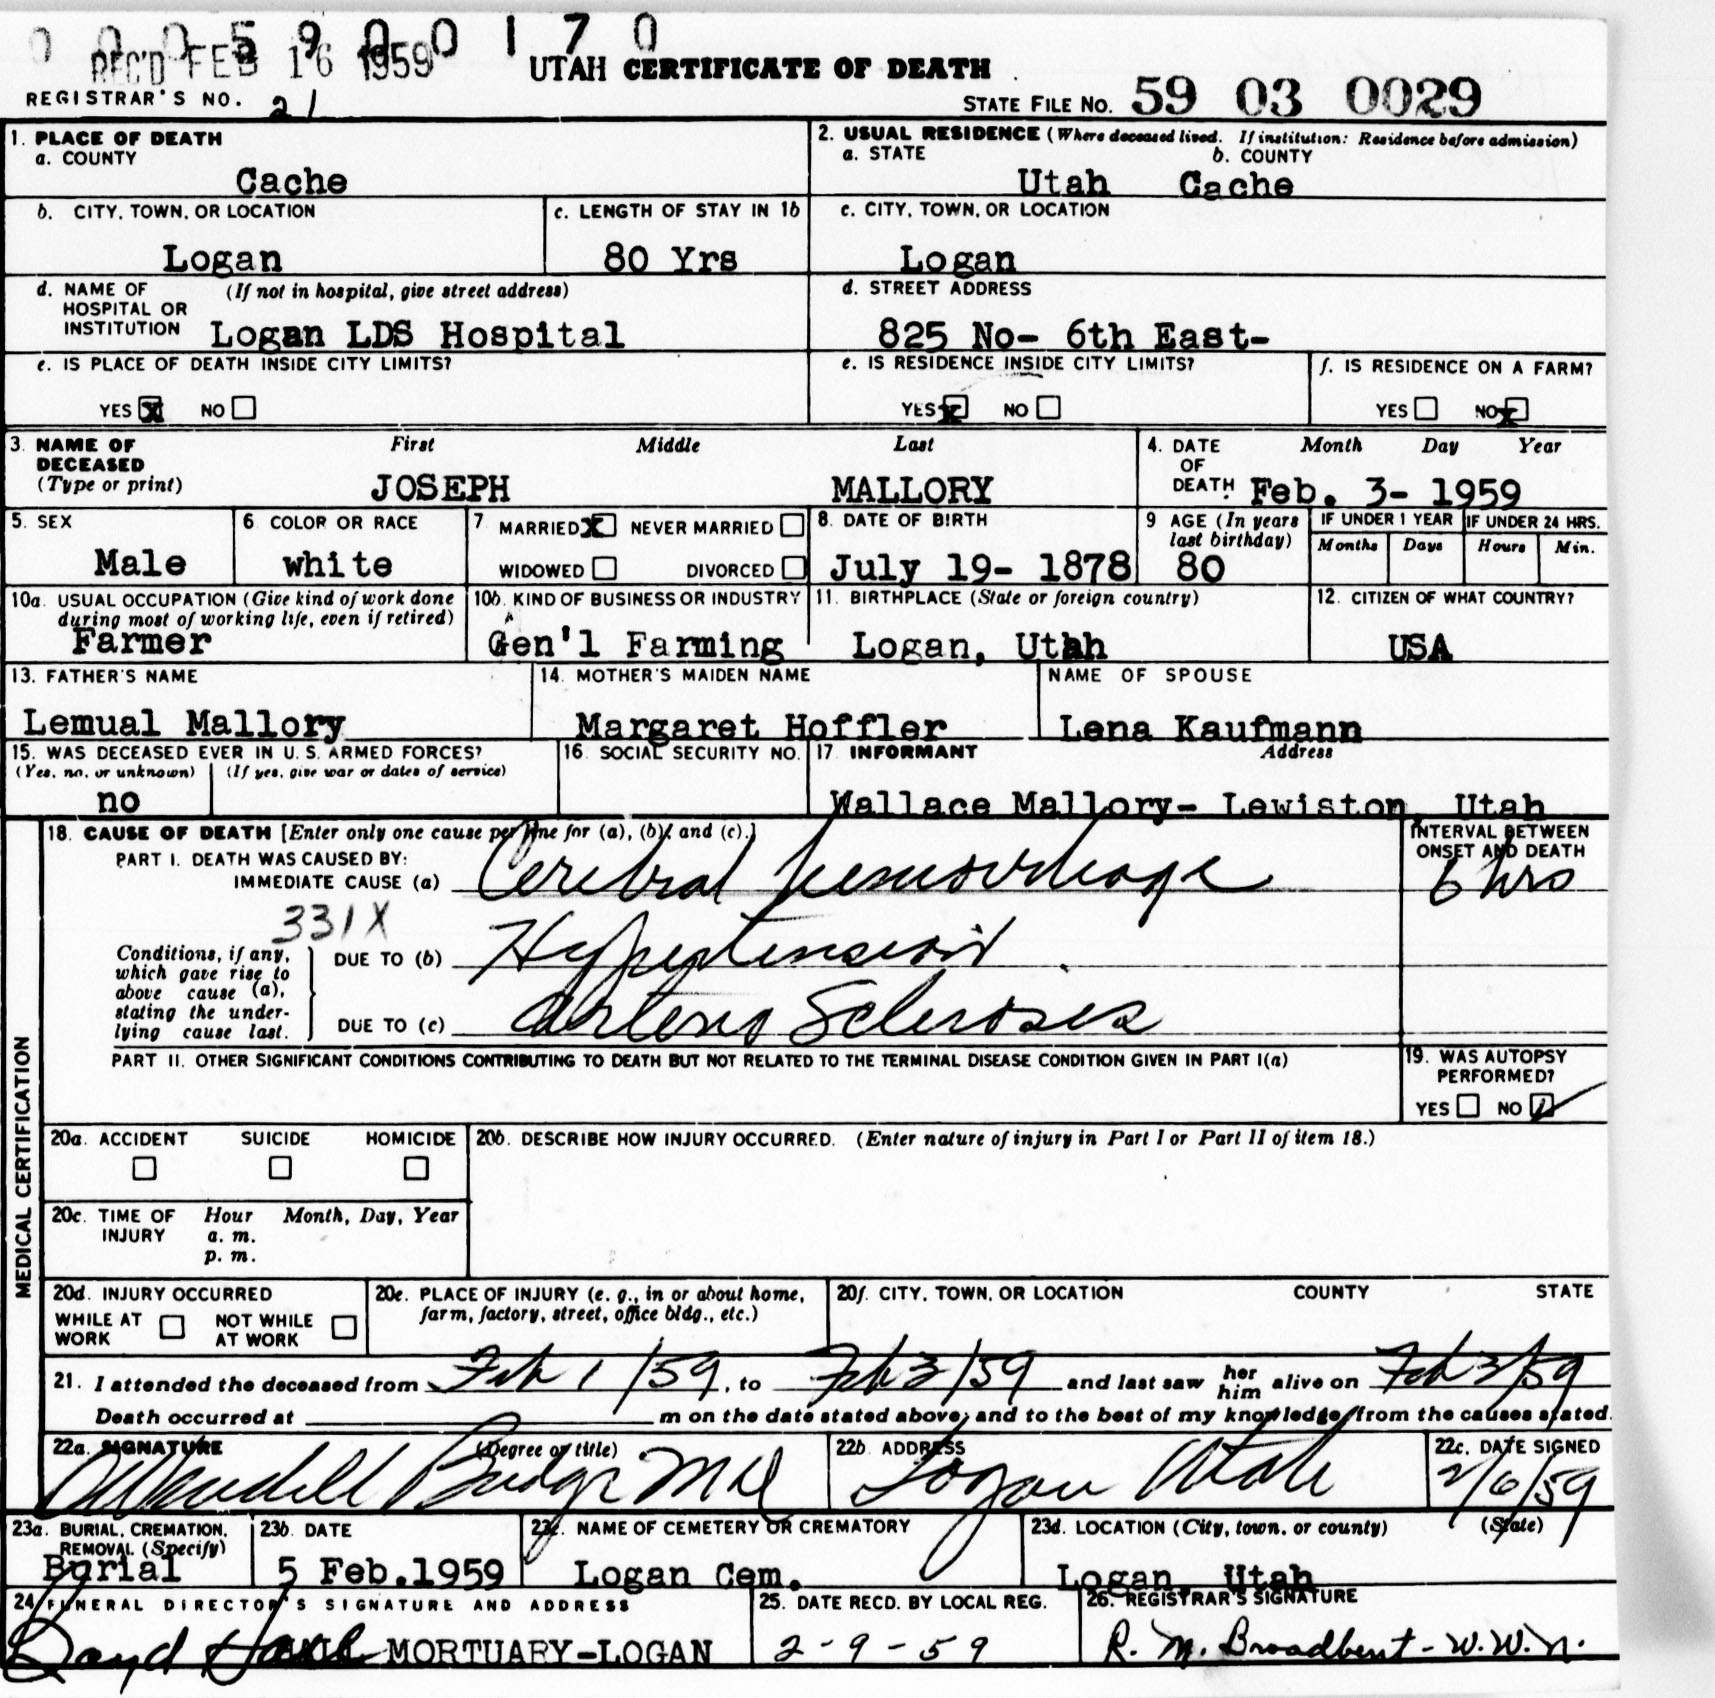 0 0 0 5 9 0 0 1 7 0
REC'D FEB 16 1959
UTAH CERTIFICATE OF DEATH
REGISTRAR'S NO. 21
STATE FILE NO. 59 03 0029
1. PLACE OF DEATH
a. COUNTY
Cache
2. USUAL RESIDENCE (Where deceased lived. If institution: Residence before admission)
a. STATE b. COUNTY
Utah Cache
b. CITY, TOWN, OR LOCATION
Logan
c. LENGTH OF STAY IN 1b
80 Yrs
c. CITY, TOWN, OR LOCATION
Logan
d. NAME OF HOSPITAL OR INSTITUTION (If not in hospital, give street address)
Logan LDS Hospital
d. STREET ADDRESS
825 No- 6th East-
e. IS PLACE OF DEATH INSIDE CITY LIMITS?
YES X NO
e. IS RESIDENCE INSIDE CITY LIMITS?
YES X NO
f. IS RESIDENCE ON A FARM?
YES NO X
3. NAME OF DECEASED (Type or print)
First Middle Last
JOSEPH MALLORY
4. DATE OF DEATH Month Day Year
Feb. 3- 1959
5. SEX
Male
6 COLOR OR RACE
white
7 MARRIED X NEVER MARRIED
WIDOWED DIVORCED
8. DATE OF BIRTH
July 19- 1878
9 AGE (In years last birthday)
80
IF UNDER 1 YEAR IF UNDER 24 HRS.
Months Days Hours Min.
10a. USUAL OCCUPATION (Give kind of work done during most of working life, even if retired)
Farmer
10b. KIND OF BUSINESS OR INDUSTRY
Gen'l Farming
11. BIRTHPLACE (State or foreign country)
Logan, Utah
12. CITIZEN OF WHAT COUNTRY?
USA
13. FATHER'S NAME
Lemual Mallory
14. MOTHER'S MAIDEN NAME
Margaret Hoffler
NAME OF SPOUSE
Lena Kaufmann
15. WAS DECEASED EVER IN U.S. ARMED FORCES?
(Yes, no, or unknown) (If yes, give war or dates of service)
no
16. SOCIAL SECURITY NO.
17. INFORMANT Address
Wallace Mallory- Lewiston, Utah
MEDICAL CERTIFICATION
18. CAUSE OF DEATH [Enter only one cause per line for (a), (b), and (c).]
INTERVAL BETWEEN ONSET AND DEATH
PART I. DEATH WAS CAUSED BY:
IMMEDIATE CAUSE (a) Cerebral hemorrhage 6 hrs
331X
Conditions, if any, which gave rise to above cause (a), stating the underlying cause last.
DUE TO (b) Hypertension
DUE TO (c) Arterio Sclerosis
PART II. OTHER SIGNIFICANT CONDITIONS CONTRIBUTING TO DEATH BUT NOT RELATED TO THE TERMINAL DISEASE CONDITION GIVEN IN PART I(a)
19. WAS AUTOPSY PERFORMED?
YES NO ✓
20a. ACCIDENT SUICIDE HOMICIDE
20b. DESCRIBE HOW INJURY OCCURRED. (Enter nature of injury in Part I or Part II of item 18.)
20c. TIME OF INJURY Hour Month, Day, Year
a. m.
p. m.
20d. INJURY OCCURRED
WHILE AT WORK NOT WHILE AT WORK
20e. PLACE OF INJURY (e. g., in or about home, farm, factory, street, office bldg., etc.)
20f. CITY, TOWN, OR LOCATION COUNTY STATE
21. I attended the deceased from Feb 1/59, to Feb 3/59 and last saw her him alive on Feb 3/59
Death occurred at m on the date stated above, and to the best of my knowledge, from the causes stated.
22a. SIGNATURE (Degree or title)
Wendell Budge MD
22b. ADDRESS
Logan Utah
22c. DATE SIGNED
2/6/59
23a. BURIAL, CREMATION, REMOVAL (Specify)
Burial
23b. DATE
5 Feb.1959
23c. NAME OF CEMETERY OR CREMATORY
Logan Cem.
23d. LOCATION (City, town, or county) (State)
Logan, Utah
24 FUNERAL DIRECTOR'S SIGNATURE AND ADDRESS
Boyd Hall HALL MORTUARY-LOGAN
25. DATE RECD. BY LOCAL REG.
2-9-59
26. REGISTRAR'S SIGNATURE
R. M. Broadbent - W.W.N.